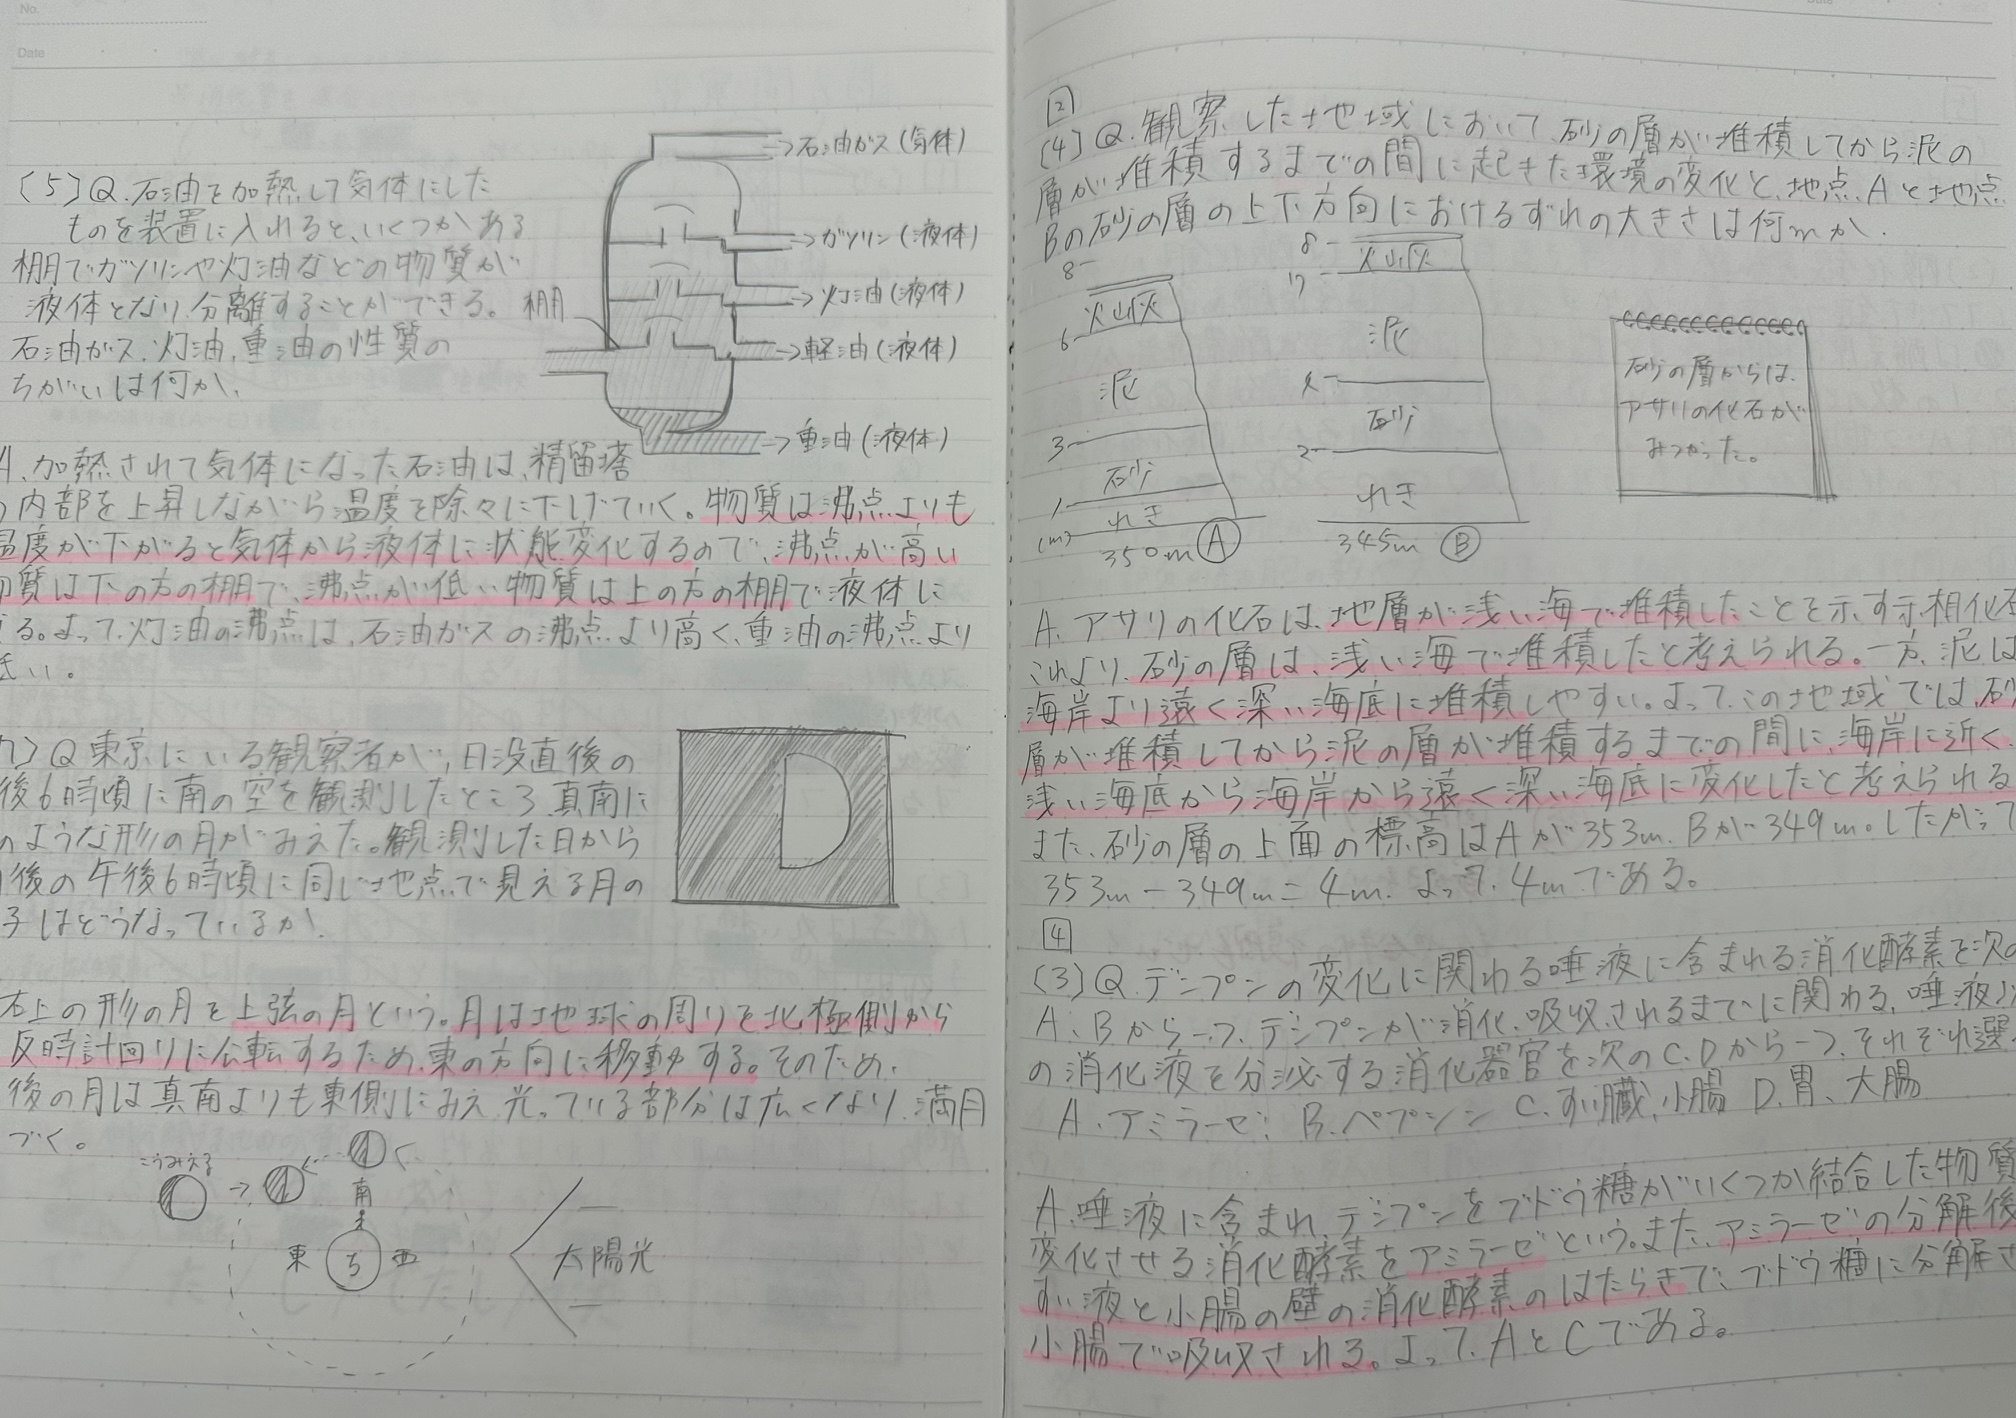 No.
Date
(5)Q.石油を加熱して気体にした
ものを装置に入れると、いくつかある
棚でガソリンや灯油などの物質が
液体となり、分離することができる。
石油ガス、灯油、重油の性質の
ちがいは何か、
棚
→石油ガス(気体)
→ガソリン(液体)
→灯油(液体)
→軽油(液体)
→重油(液体)
A.加熱されて気体になった石油は、精留塔
内部を上昇しながら温度を除々に下げていく。物質は沸点よりも
温度が下がると気体から液体に状態変化するので、沸点が高い
物質は下の方の棚で、沸点が低い物質は上の方の棚で液体に
る。よって、灯油の沸点は、石油ガスの沸点より高く、重油の沸点より
低い。
Q 東京にいる観察者が、日没直後の
後6時頃に南の空を観測したところ、真南に
のような形の月がみえた。観測した日から
後の午後6時頃に同じ地点で見える月の
子はどうなっているか.
右上の形の月を上弦の月という。月は地球の周りを北極側から
反時計回りに公転するため、東の方向に移動する。そのため、
後の月は真南よりも東側にみえ、光っている部分は広くなり、満月
づく。
こうみえる
南
東 ち 西
太陽光
2
(4)Q.観察した地域において、砂の層が堆積してから泥の
層が堆積するまでの間に起きた環境の変化と、地点Aと地点
Bの砂の層の上下方向におけるずれの大きさは何mか.
8
火山灰
6
泥
3
砂
1
れき
(m)
350m A
8
火山灰
7
泥
4
砂
2
れき
345m B
砂の層からは、
アサリの化石が
みつかった。
A、アサリの化石は、地層が浅い海で堆積したことを示す示相化石
これより、砂の層は、浅い海で堆積したと考えられる。一方、泥は
海岸より遠く深い海底に堆積しやすい。よって、この地域では、砂
層が堆積してから泥の層が堆積するまでの間に、海岸に近く、
浅い海底から海岸から遠く深い海底に変化したと考えられる
また、砂の層の上面の標高はAが353m、Bが349m。したがって
353m-349m=4m. よって、4mである。
4
(3)Q.デンプンの変化に関わる唾液に含まれる消化酵素を次の
A、Bから一つ、デンプンが消化、吸収されるまでに関わる、唾液以
の消化液を分泌する消化器官を次のC、Dから一つ、それぞれ選
A.アミラーゼ: B.ペプシン C.すい臓、小腸 D.胃、大腸
A、唾液に含まれ、デンプンをブドウ糖がいくつか結合した物質
変化させる消化酵素をアミラーゼという。また、アミラーゼの分解後
すい液と小腸の壁の消化酵素のはたらきで、ブドウ糖に分解さ
小腸で吸収される。よって、AとCである。